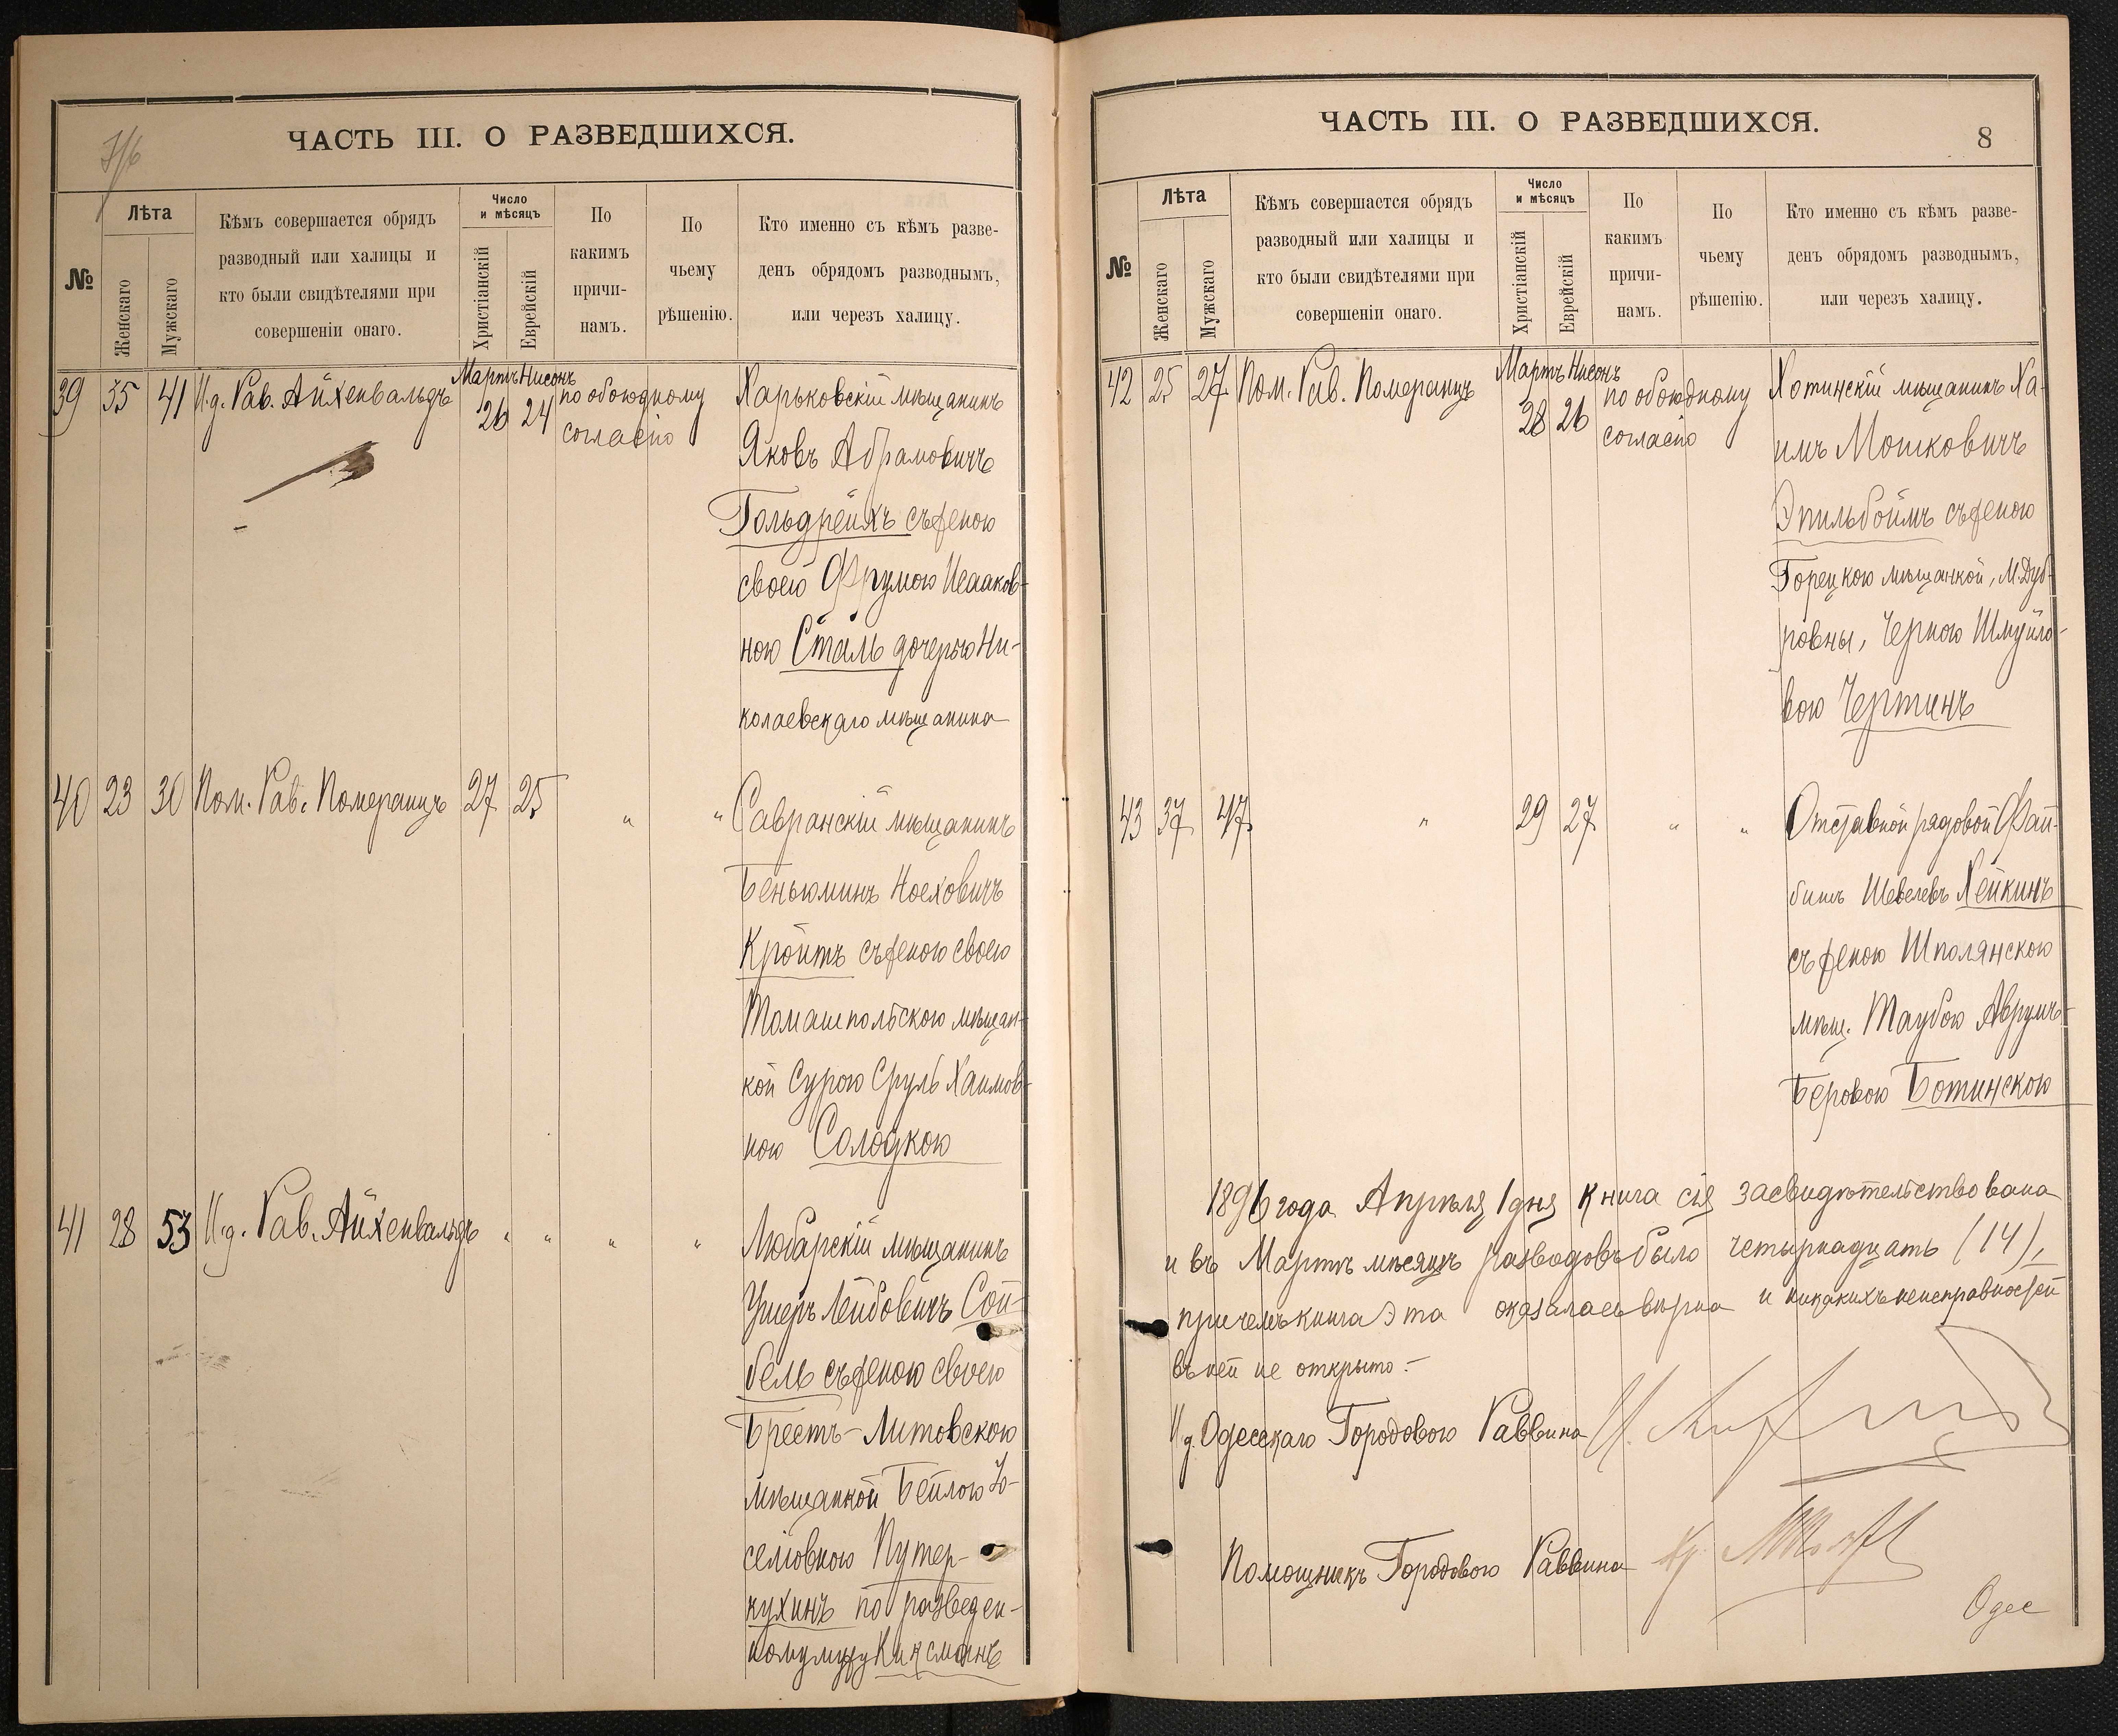 7/6
ЧАСТЬ III. О РАЗВЕДШИХСЯ.
№
Лѣта
Женскаго
Мужскаго
Кѣмъ совершается обрядъ
разводный или халицы и
кто были свидѣтелями при
совершеніи онаго.
Число
и мѣсяцъ
Христіанскій
Еврейскій
По
какимъ
причи-
намъ.
По
чьему
рѣшенію.
Кто именно съ кѣмъ разве-
денъ обрядомъ разводнымъ,
или черезъ халицу.
39 35 41 И.д. Рав. Айхенвальдъ Мартъ 26 Нисонъ 24 по обоюдному Харьковскій мѣщанинъ
согласію Яковъ Абрамовичъ
Гольдрейхъ съ женою
своею Фрумою Исааков-
ною Сталь дочерью Ни-
колаевскаго мѣщанина
40 23 30 Пом. Рав. Померанцъ 27 25 " " Савранскій мѣщанинъ
Беньюминъ Ноеховичъ
Кройтъ съ женою своею
Томашпольскою мѣщан-
кой Сурою Сруль Хаимов-
ною Солодкою
41 28 53 И.д. Рав. Айхенвальдъ " " " " Любарскій мѣщанинъ
Ушеръ Лейбовичъ Сой-
бель съ женою своею
Брестъ-Литовскою
мѣщанкой Бейлою Ю-
селіовною Путер-
кухинъ по разведен-
ному мужу Киксманъ
ЧАСТЬ III. О РАЗВЕДШИХСЯ.
8
№
Лѣта
Женскаго
Мужскаго
Кѣмъ совершается обрядъ
разводный или халицы и
кто были свидѣтелями при
совершеніи онаго.
Число
и мѣсяцъ
Христіанскій
Еврейскій
По
какимъ
причи-
намъ.
По
чьему
рѣшенію.
Кто именно съ кѣмъ разве-
денъ обрядомъ разводнымъ,
или черезъ халицу.
42 25 27 Пом. Рав. Померанцъ Мартъ 28 Нисонъ 26 по обоюдному Хотинскій мѣщанинъ Ха-
согласію имъ Мошковичъ
Эпильбоймъ съ женою
Горецкою мѣщанкой, М. Дуб-
ровны, Черною Шмуйло-
вою Чертинъ
43 37 47 " 29 27 " " Отставной рядовой Фай-
бишъ Шевелевъ Хейкинъ
съ женою Шполянскою
мѣщ. Таубою Аврумъ-
Беровою Ботинскою
1896 года Апрѣля 1 дня книга сія засвидѣтельствована
и въ Мартѣ мѣсяцѣ разводовъ было четырнадцать (14),
причемъ книга эта оказалась вѣрна и никакихъ неисправностей
въ ней не открыто.-
И.д. Одесскаго Городового Раввина
Помощникъ Городового Раввина
Одес